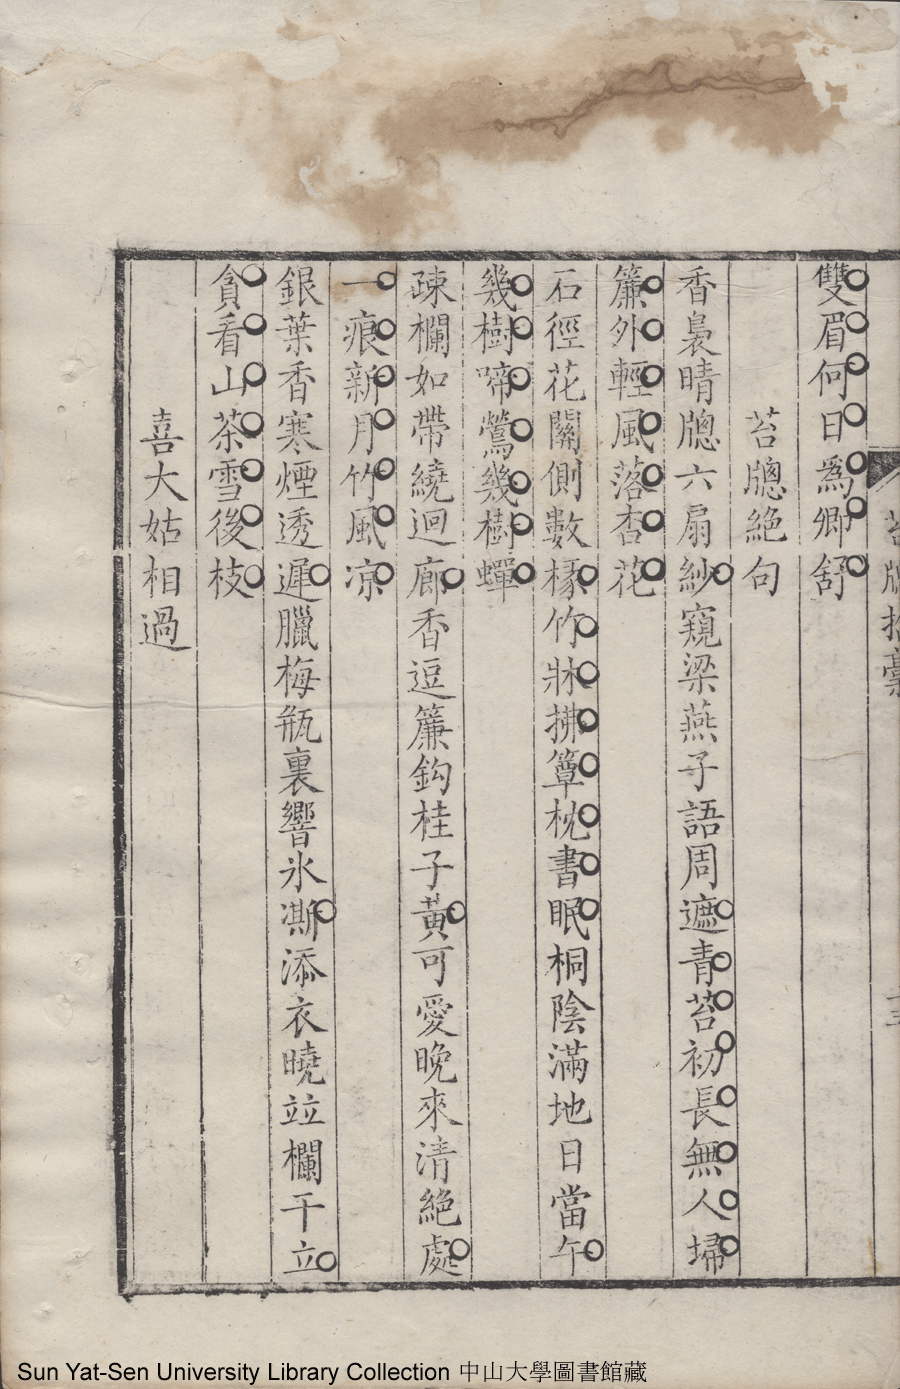 雙眉何日爲卿舒
苔牕絕句
香裊晴牕六扇紗窺梁燕子語周遮青苔初長無人埽
簾外輕風落杏花
石徑花關側數椽竹牀拂簟枕書眠桐陰滿地日當午
幾樹啼鶯幾樹蟬
疎欄如帶繞迴廊香逗簾鈎桂子黃可愛晚來清絕處
一痕新月竹風凉
銀葉香寒煙透遲臘梅瓶裏響氷澌添衣曉竝欄干立
貪看山茶雪後枝
喜大姑相過
Sun Yat-Sen University Library Collection 中山大學圖書館藏